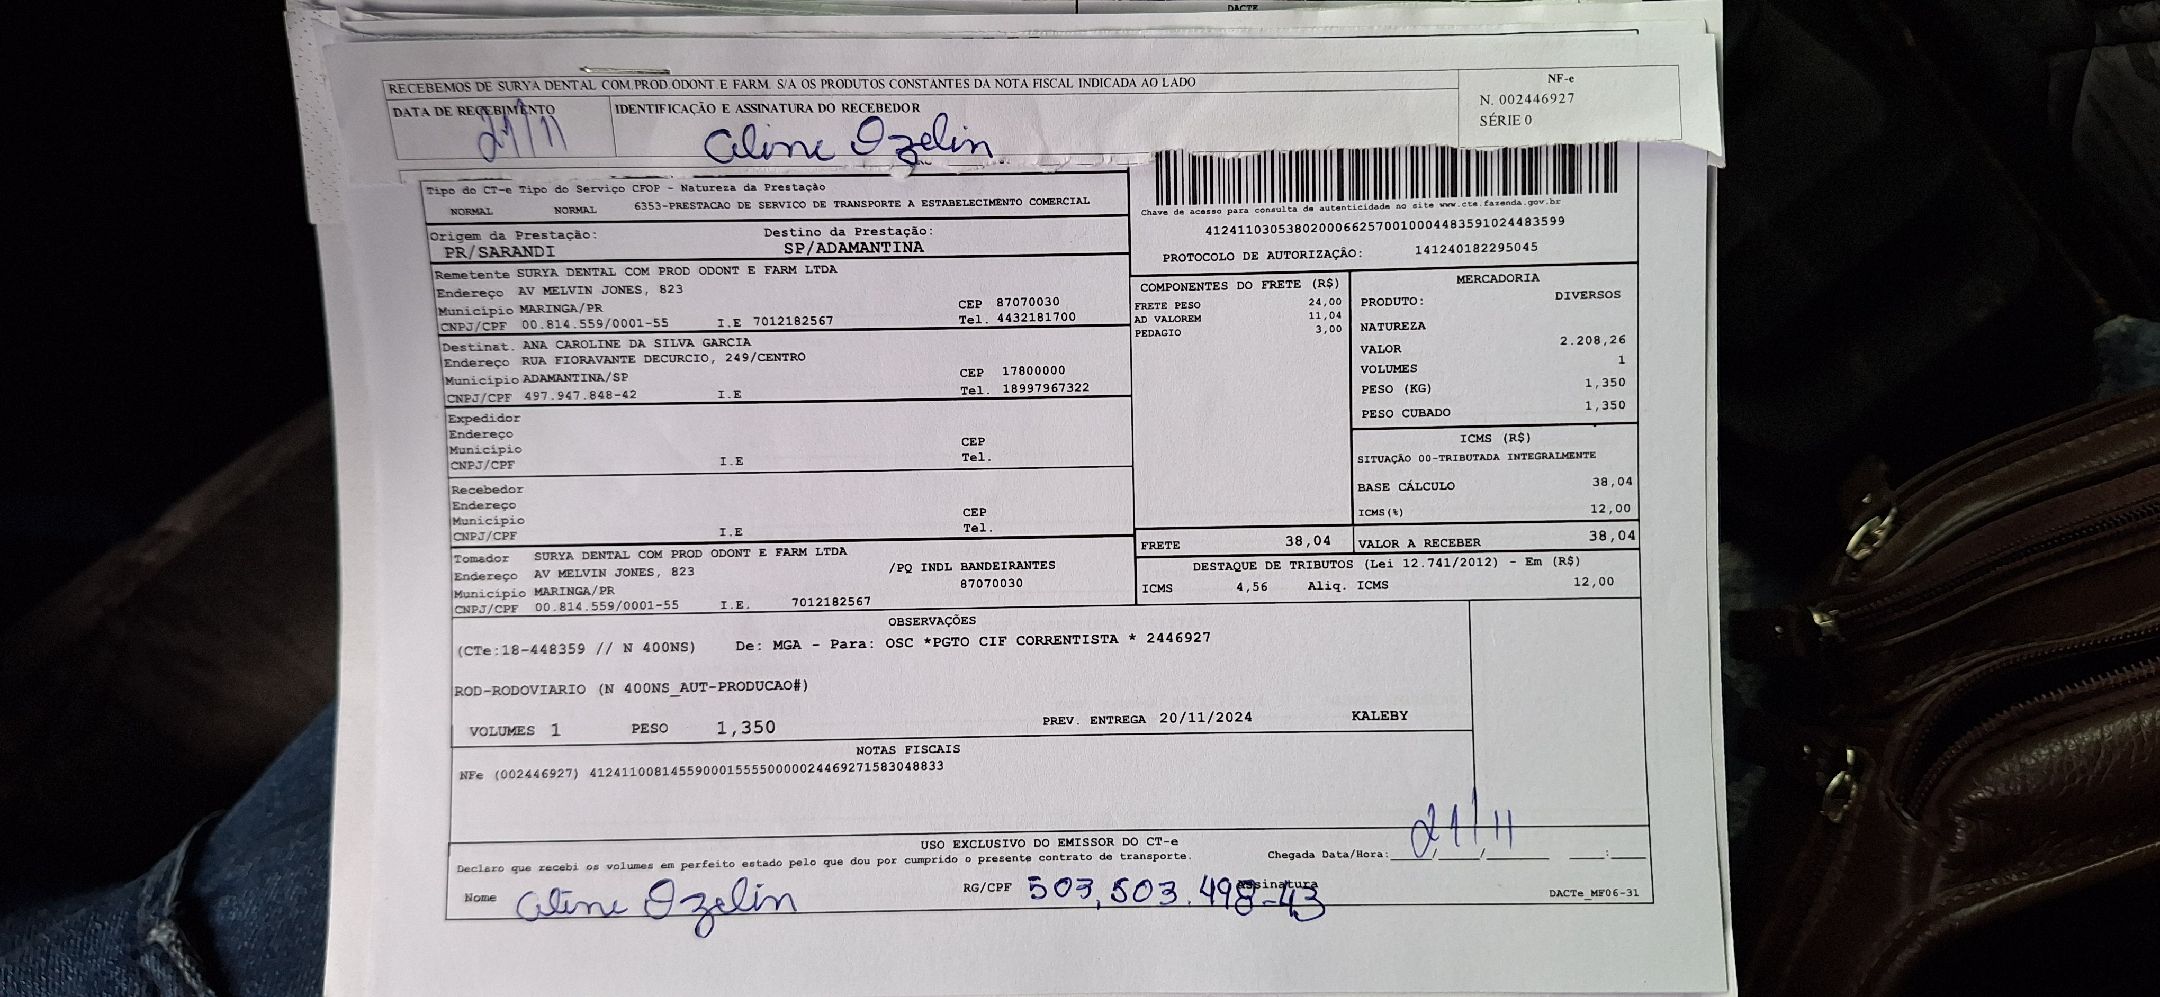 DACTE
RECEBEMOS DE SURYA DENTAL COM.PROD.ODONT E FARM. S/A OS PRODUTOS CONSTANTES DA NOTA FISCAL INDICADA AO LADO
NF-e
N. 002446927
SÉRIE 0
DATA DE RECEBIMENTO
21/11
IDENTIFICAÇÃO E ASSINATURA DO RECEBEDOR
Aline Ozelin
Tipo do CT-e Tipo do Serviço CFOP - Natureza da Prestação
NORMAL NORMAL 6353-PRESTACAO DE SERVICO DE TRANSPORTE A ESTABELECIMENTO COMERCIAL
Chave de acesso para consulta de autenticidade no site www.cte.fazenda.gov.br
41241103053802000662570010004483591024483599
PROTOCOLO DE AUTORIZAÇÃO: 141240182295045
Origem da Prestação: Destino da Prestação:
PR/SARANDI SP/ADAMANTINA
Remetente SURYA DENTAL COM PROD ODONT E FARM LTDA
Endereço AV MELVIN JONES, 823
Município MARINGA/PR CEP 87070030
CNPJ/CPF 00.814.559/0001-55 I.E 7012182567 Tel. 4432181700
Destinat. ANA CAROLINE DA SILVA GARCIA
Endereço RUA FIORAVANTE DECURCIO, 249/CENTRO
Município ADAMANTINA/SP CEP 17800000
CNPJ/CPF 497.947.848-42 I.E Tel. 18997967322
Expedidor
Endereço
Município CEP
CNPJ/CPF I.E Tel.
Recebedor
Endereço
Município CEP
CNPJ/CPF I.E Tel.
Tomador SURYA DENTAL COM PROD ODONT E FARM LTDA
Endereço AV MELVIN JONES, 823 /PQ INDL BANDEIRANTES
Município MARINGA/PR 87070030
CNPJ/CPF 00.814.559/0001-55 I.E. 7012182567
COMPONENTES DO FRETE (R$)
FRETE PESO 24,00
AD VALOREM 11,04
PEDAGIO 3,00
MERCADORIA
PRODUTO: DIVERSOS
NATUREZA
VALOR 2.208,26
VOLUMES 1
PESO (KG) 1,350
PESO CUBADO 1,350
ICMS (R$)
SITUAÇÃO 00-TRIBUTADA INTEGRALMENTE
BASE CÁLCULO 38,04
ICMS(%) 12,00
FRETE 38,04 VALOR A RECEBER 38,04
DESTAQUE DE TRIBUTOS (Lei 12.741/2012) - Em (R$)
ICMS 4,56 Aliq. ICMS 12,00
OBSERVAÇÕES
(CTe:18-448359 // N 400NS) De: MGA - Para: OSC *PGTO CIF CORRENTISTA * 2446927
ROD-RODOVIARIO (N 400NS_AUT-PRODUCAO#)
VOLUMES 1 PESO 1,350 PREV. ENTREGA 20/11/2024 KALEBY
NOTAS FISCAIS
NFe (002446927) 41241100814559000155550000024469271583048833
USO EXCLUSIVO DO EMISSOR DO CT-e
Declaro que recebi os volumes em perfeito estado pelo que dou por cumprido o presente contrato de transporte. Chegada Data/Hora: 21/11 / :
Nome Aline Ozelin RG/CPF 503,503.498-43 Assinatura DACTe_MF06-31